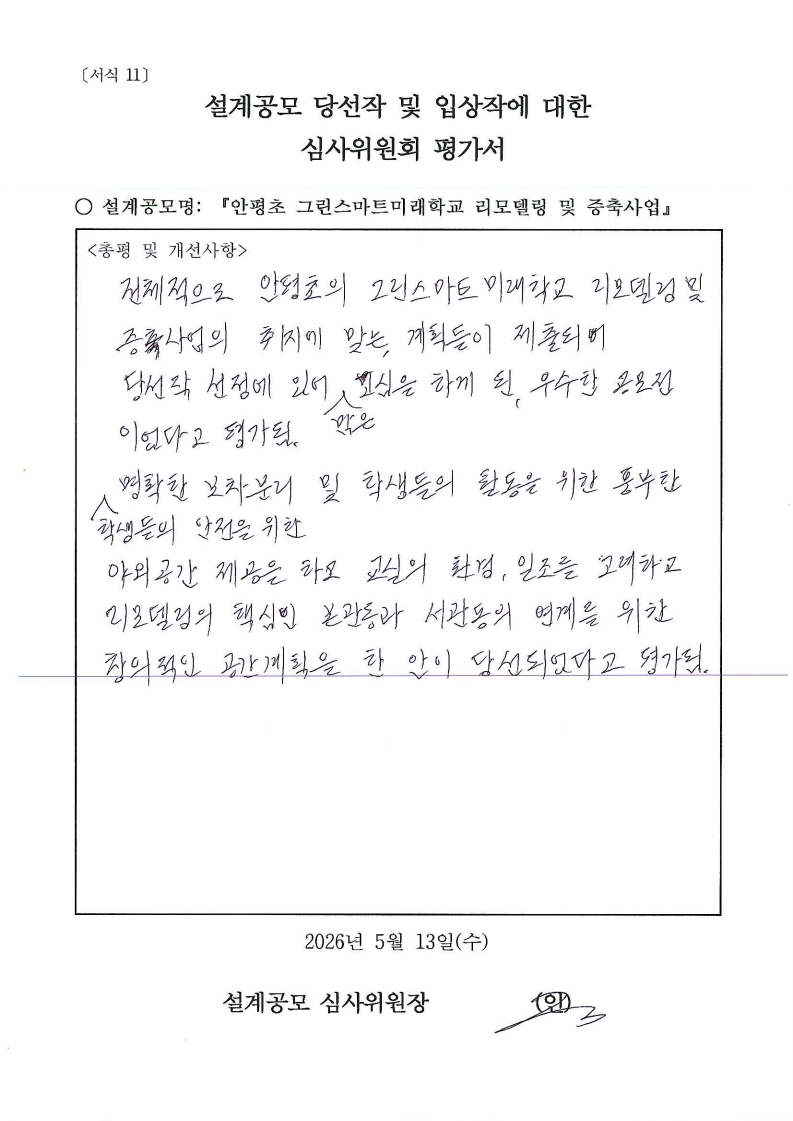 〔서식 11〕
설계공모 당선작 및 입상작에 대한
심사위원회 평가서
○ 설계공모명: 『안평초 그린스마트미래학교 리모델링 및 증축사업』
<총평 및 개선사항>
전체적으로 안평초의 그린스마트미래학교 리모델링 및
증축사업의 취지에 맞는 계획들이 제출되어
당선작 선정에 있어 많은 고심을 하게 된, 우수한 공모전
이었다고 평가됨.
학생들의 안전을 위한 명확한 보차분리 및 학생들의 활동을 위한 풍부한
야외공간 제공을 하고 교실의 환경, 일조를 고려하고
리모델링의 핵심인 본관동과 서관동의 연계를 위한
창의적인 공간계획을 한 안이 당선되었다고 평가됨.
2026년 5월 13일(수)
설계공모 심사위원장 (인)